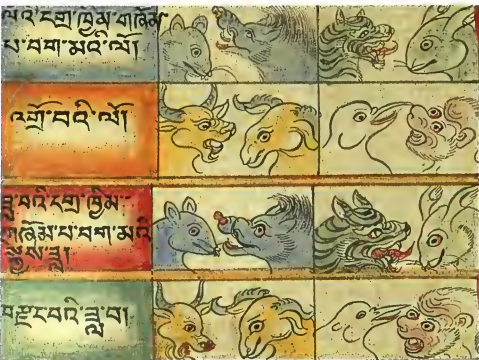 དགྲ་ཁྱིམ་གཞོམ་
པ་བག་མའི་ལོ།
འགྲོ་བའི་ལོ།
ཟླ་བའི་དགྲ་ཁྱིམ་
གཞོམ་པ་བག་མའི་
ཟླ།
བརྫང་བའི་ཟླ་བ།